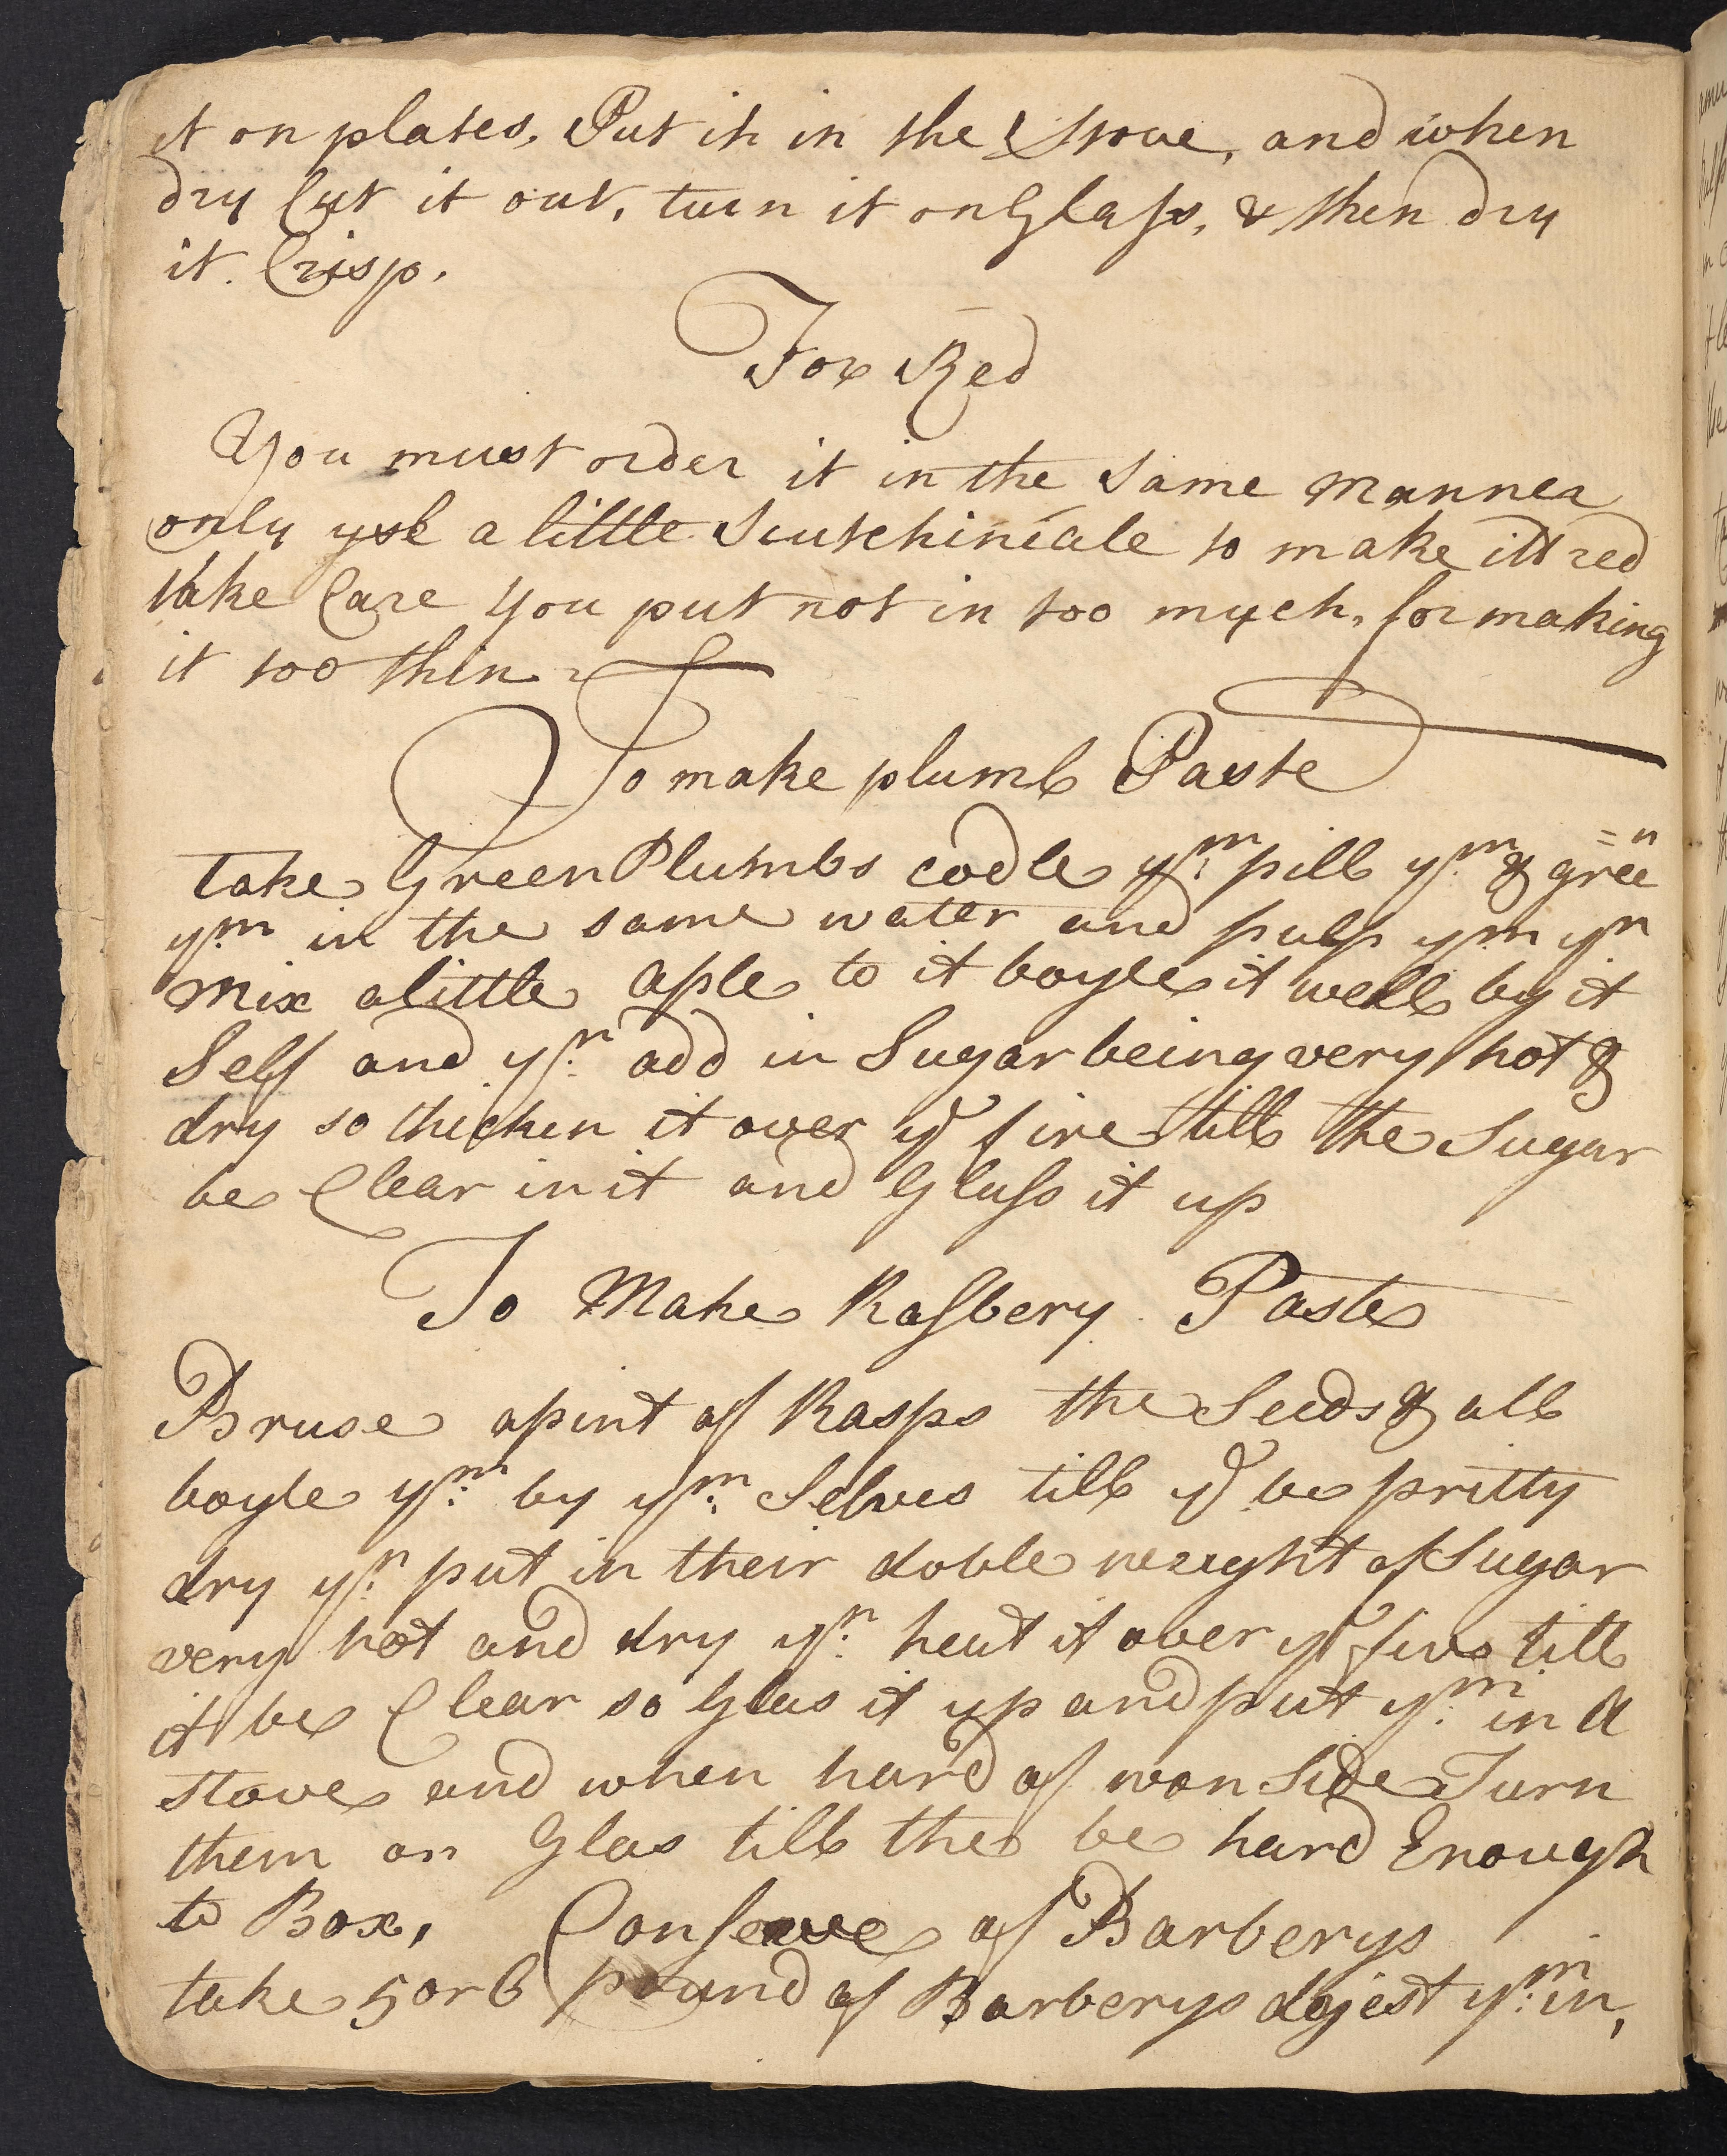 it on plates, Put it in the Stove, and when
dry Cut it out, turn it on Glass, & then dry
it Crisp.
For Red
You must order it in the Same Manner
only use a little Scutchineale to make itt red
take Care you put not in too much, for making
it too thin
To make plumb Paste
take Green Plumbs codle ym pill ym & green
ym in the same water and pulp ym yn
mix a little aple to it boyle it well by it
Self and yn add in Sugar being very hot &
dry so thicken it over ye fire till the Sugar
be Clear in it and Glass it up
To Make Rasbery Paste
Bruse a pint of Rasps the Seeds & all
boyle ym by ym Selves till ye be pritty
dry yn put in their doble weight of Sugar
very hot and dry yn heat it over ye fire till
it be Clear so Glas it up and put ym in a
stove and when hard of won Side Turn
them on Glas till the be hard Enough
to Box, Conserve of Barberys
take 5 or 6 pound of Barberys dejest ym in,